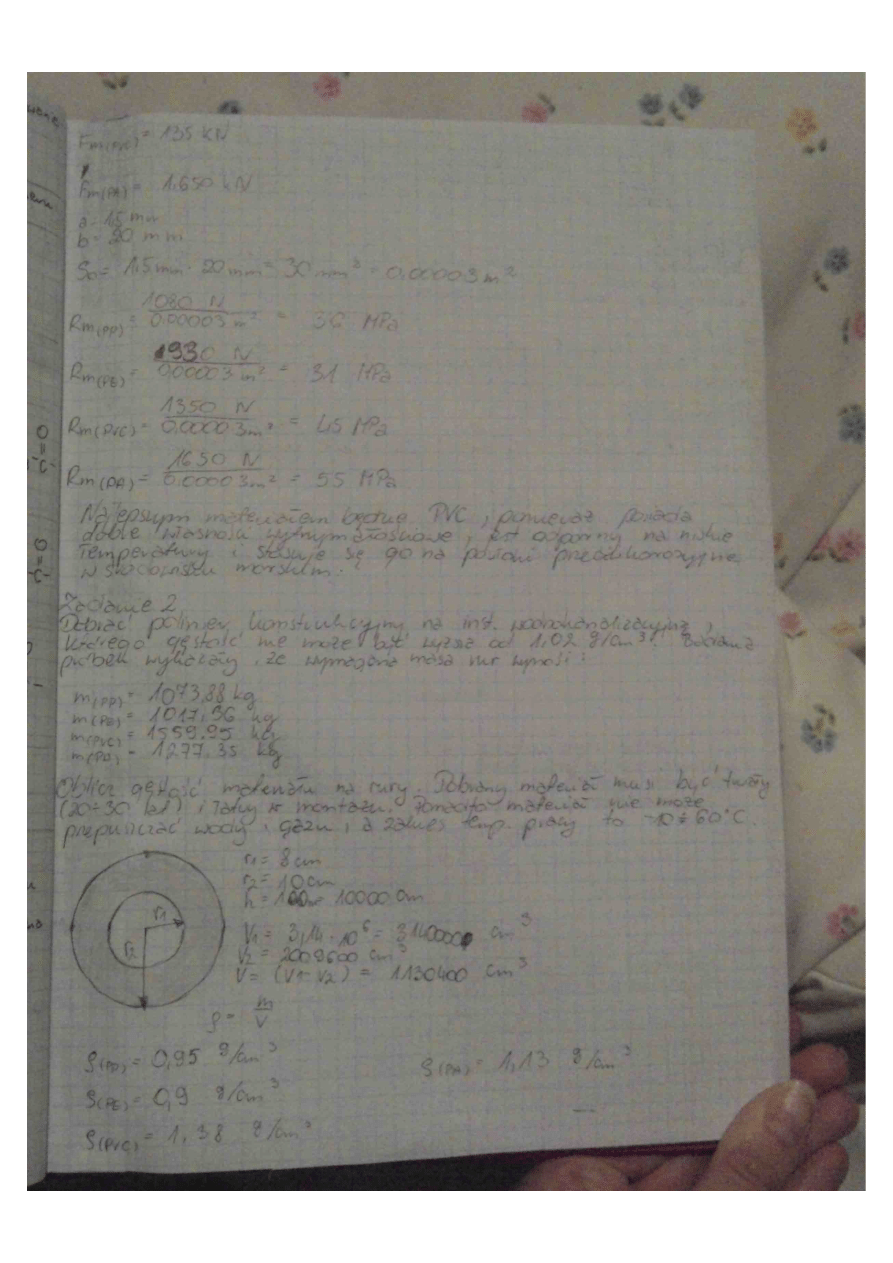 Fm(PVC) = 135 kN
Fm(PA) = 1.650 kN
a = 1,5 mm
b = 20 mm
S₀ = 1,5 mm · 20 mm = 30 mm² = 0.00003 m²
Rm(PP) = 1080 N / 0.00003 m² = 36 MPa
Rm(PE) = 930 N / 0.00003 m² = 31 MPa
Rm(PVC) = 1350 N / 0.00003 m² = 45 MPa
Rm(PA) = 1650 N / 0.00003 m² = 55 MPa
Najlepszym materiałem będzie PVC, ponieważ posiada
dobre własności wytrzymałościowe, jest odporny na niskie
temperatury i stosuje się go na powłoki przeciwkorozyjne
w środowisku morskim.
Zadanie 2
Dobrać polimer konstrukcyjny na inst. wodnokanalizacyjną,
którego gęstość nie może być wyższa od 1,02 g/cm³. Badania
próbek wykazały, że wymagana masa rur wynosi:
m(PP) = 1073,88 kg
m(PE) = 1017,36 kg
m(PVC) = 1559.95 kg
m(PA) = 1277.35 kg
Oblicz gęstość materiału na rury. Dobrany materiał musi być trwały
(20÷30 lat) i łatwy w montażu. Ponadto materiał nie może
przepuszczać wody i gazu, a zakres temp. pracy to -10÷60°C.
r1 = 8 cm
r2 = 10 cm
h = 100m = 10000 cm
r1
r2
V1 = 3,14 · 10⁶ = 3140000 cm³
V2 = 2009600 cm³
V = (V1 - V2) = 1130400 cm³
ρ = m / V
ρ(PP) = 0,95 g/cm³ ρ(PA) = 1,13 g/cm³
ρ(PE) = 0,9 g/cm³
ρ(PVC) = 1,38 g/cm³